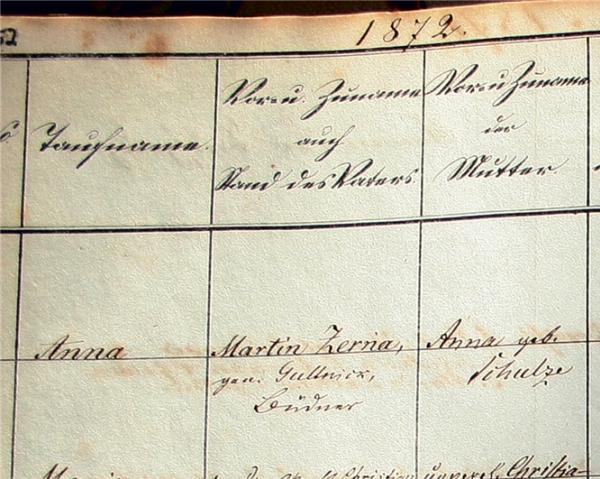 52
1872.
Taufname.
Vor- u. Zuname
auch
Stand des Vaters.
Vor- u Zuname
der
Mutter.
Anna
Martin Zernia,
gen. Gullnick,
Büdner
Anna geb.
Schulze
Christian
unverehl. Christia-